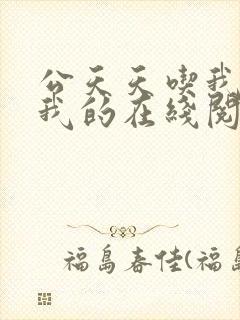 公天天喫我
我的在綫閱
福島春佳(福島